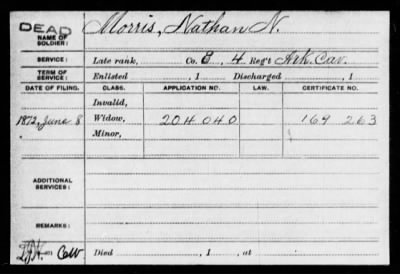 DEAD
NAME OF SOLDIER: Morris, Nathan N.
SERVICE: Late rank, Co. E, 4 Reg't Ark. Cav.
TERM OF SERVICE: Enlisted , 1 Discharged , 1
DATE OF FILING. CLASS. APPLICATION NO. LAW. CERTIFICATE NO.
Invalid,
1872, June 8 Widow, 204 040 169 263
Minor,
ADDITIONAL SERVICES:
REMARKS:
Died , 1 , at